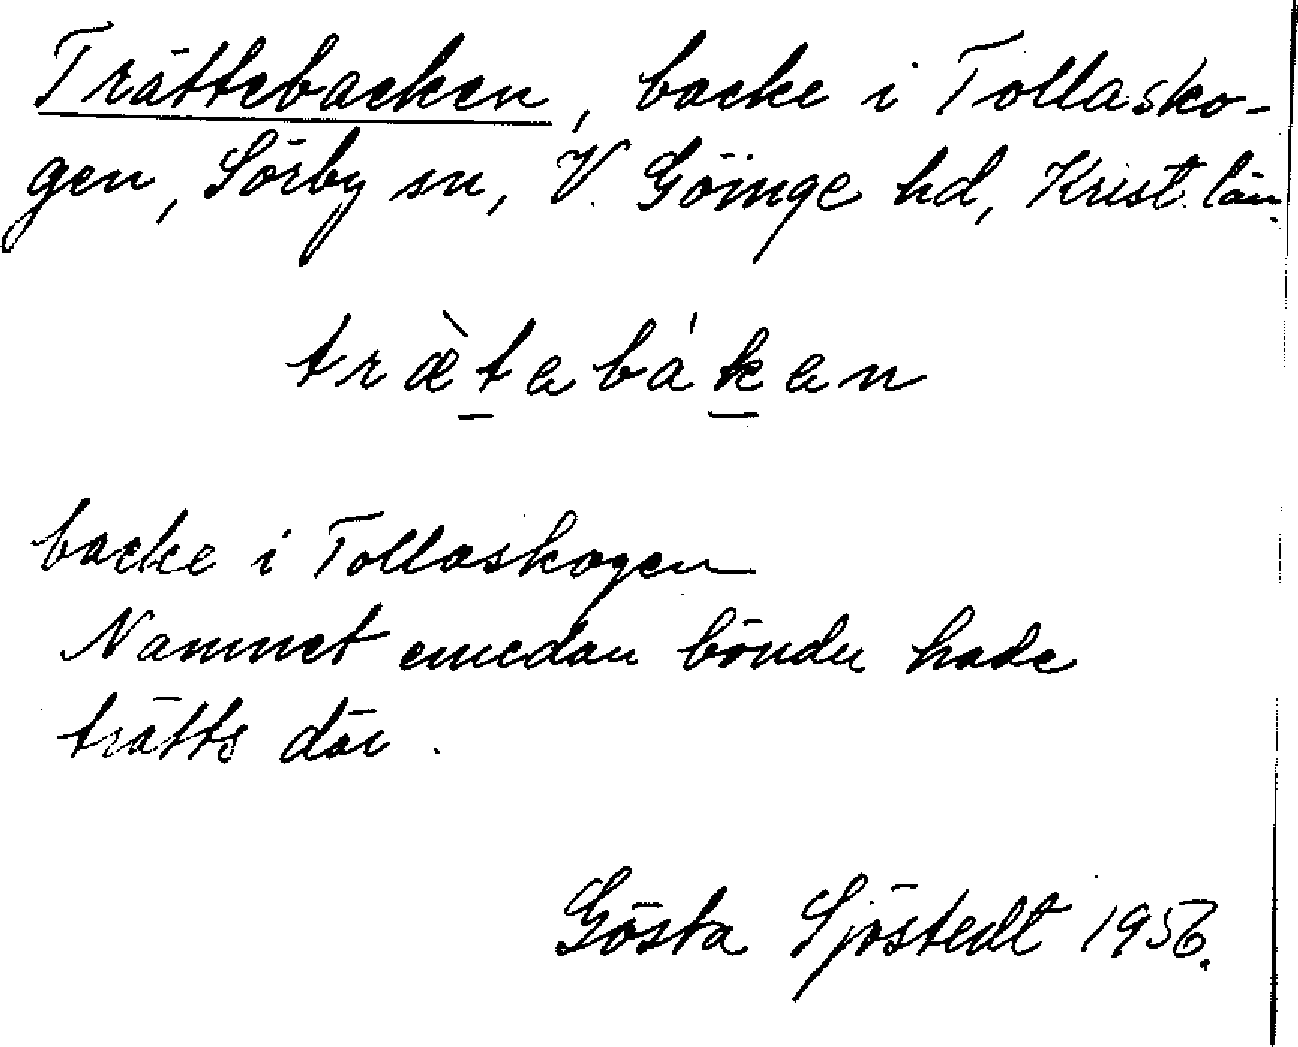 Trättebacken, backe i Tollasko-
gen, Sörby sn, V. Göinge hd, Krist. län.
træ̀tabákan
backe i Tollaskogen
Namnet emedan bönder hade
trätts där.
Gösta Sjöstedt 1956.